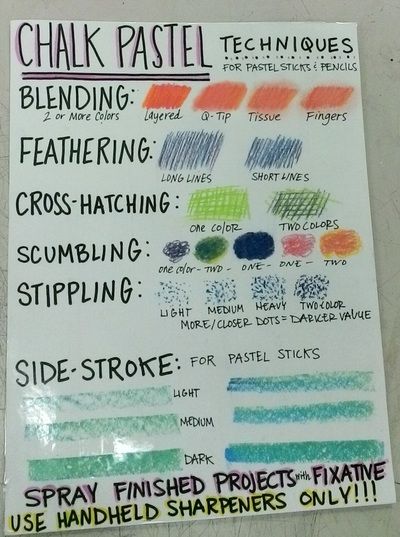 CHALK PASTEL TECHNIQUES
FOR PASTEL STICKS & PENCILS
BLENDING:
2 or More Colors
Layered Q-Tip Tissue Fingers
FEATHERING:
LONG LINES SHORT LINES
CROSS-HATCHING:
ONE COLOR TWO COLORS
SCUMBLING:
one color - TWO - ONE - ONE - TWO
STIPPLING:
LIGHT MEDIUM HEAVY TWO COLOR
MORE/CLOSER DOTS = DARKER VALUE
SIDE-STROKE: FOR PASTEL STICKS
LIGHT
MEDIUM
DARK
SPRAY FINISHED PROJECTS with FIXATIVE
USE HANDHELD SHARPENERS ONLY!!!